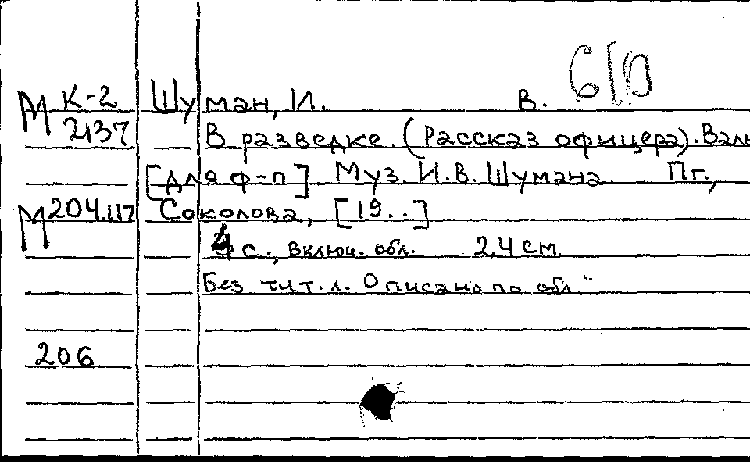 М К-2 Шуман, И. В. 610
2137 В разведке. (Рассказ офицера). Валь
[для ф-п] Муз. И.В. Шумана Пг.,
М 204.117 Соколова, [19..]
4 с., включ. обл. 24 см
Без тит. л. Описано по обл.
206